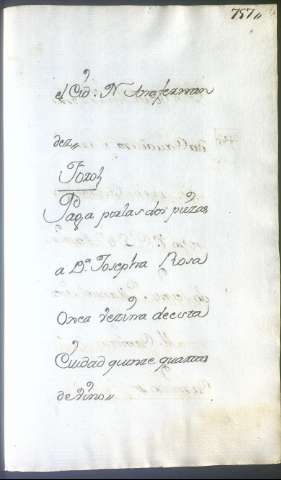 757„
el Cid: N Anofernan
dez„
Toxoſ
Paga p.r alas dos piezas
a D.ª Josepha Rosa
Onca vezina de esta
Ciudad quinze quartas
de vino„